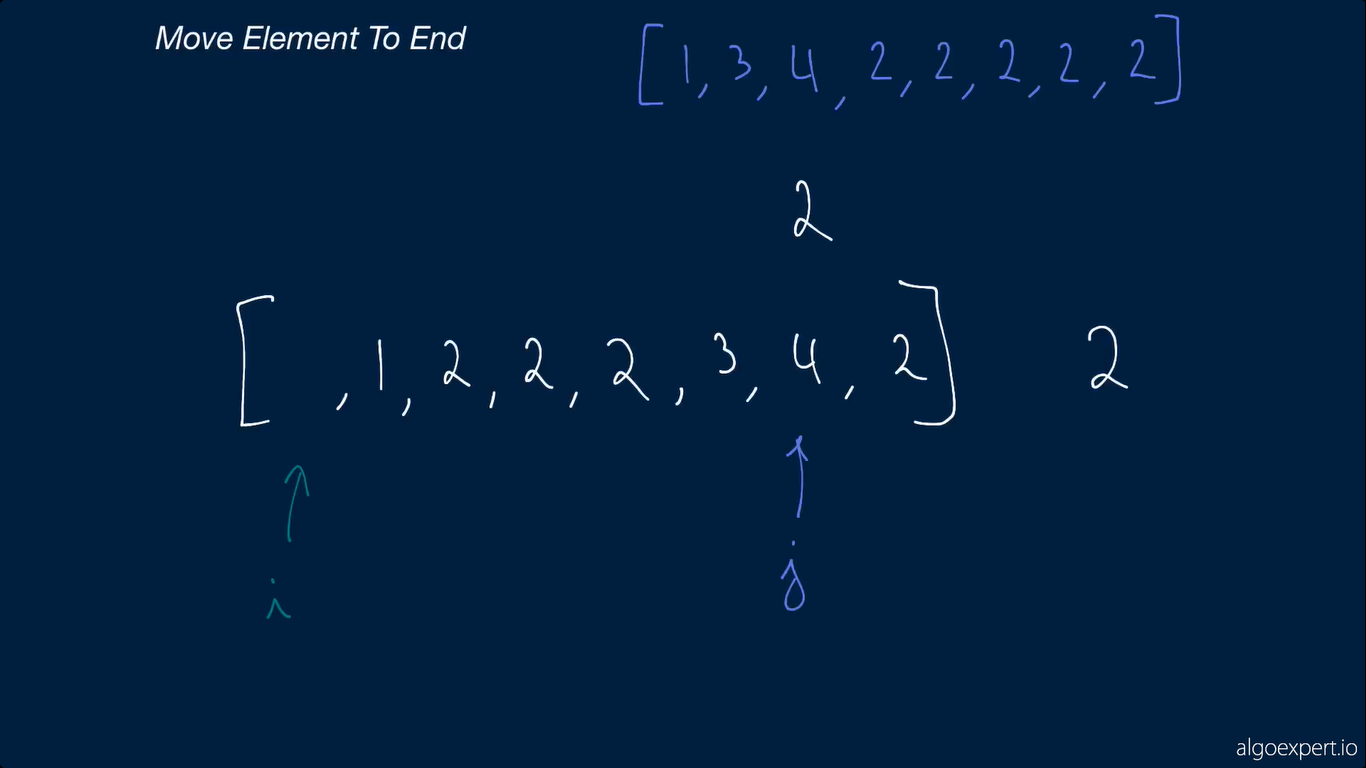 Move Element To End
[1, 3, 4, 2, 2, 2, 2, 2]
2
[ , 1, 2, 2, 2, 3, 4, 2] 2
i j
algoexpert.io